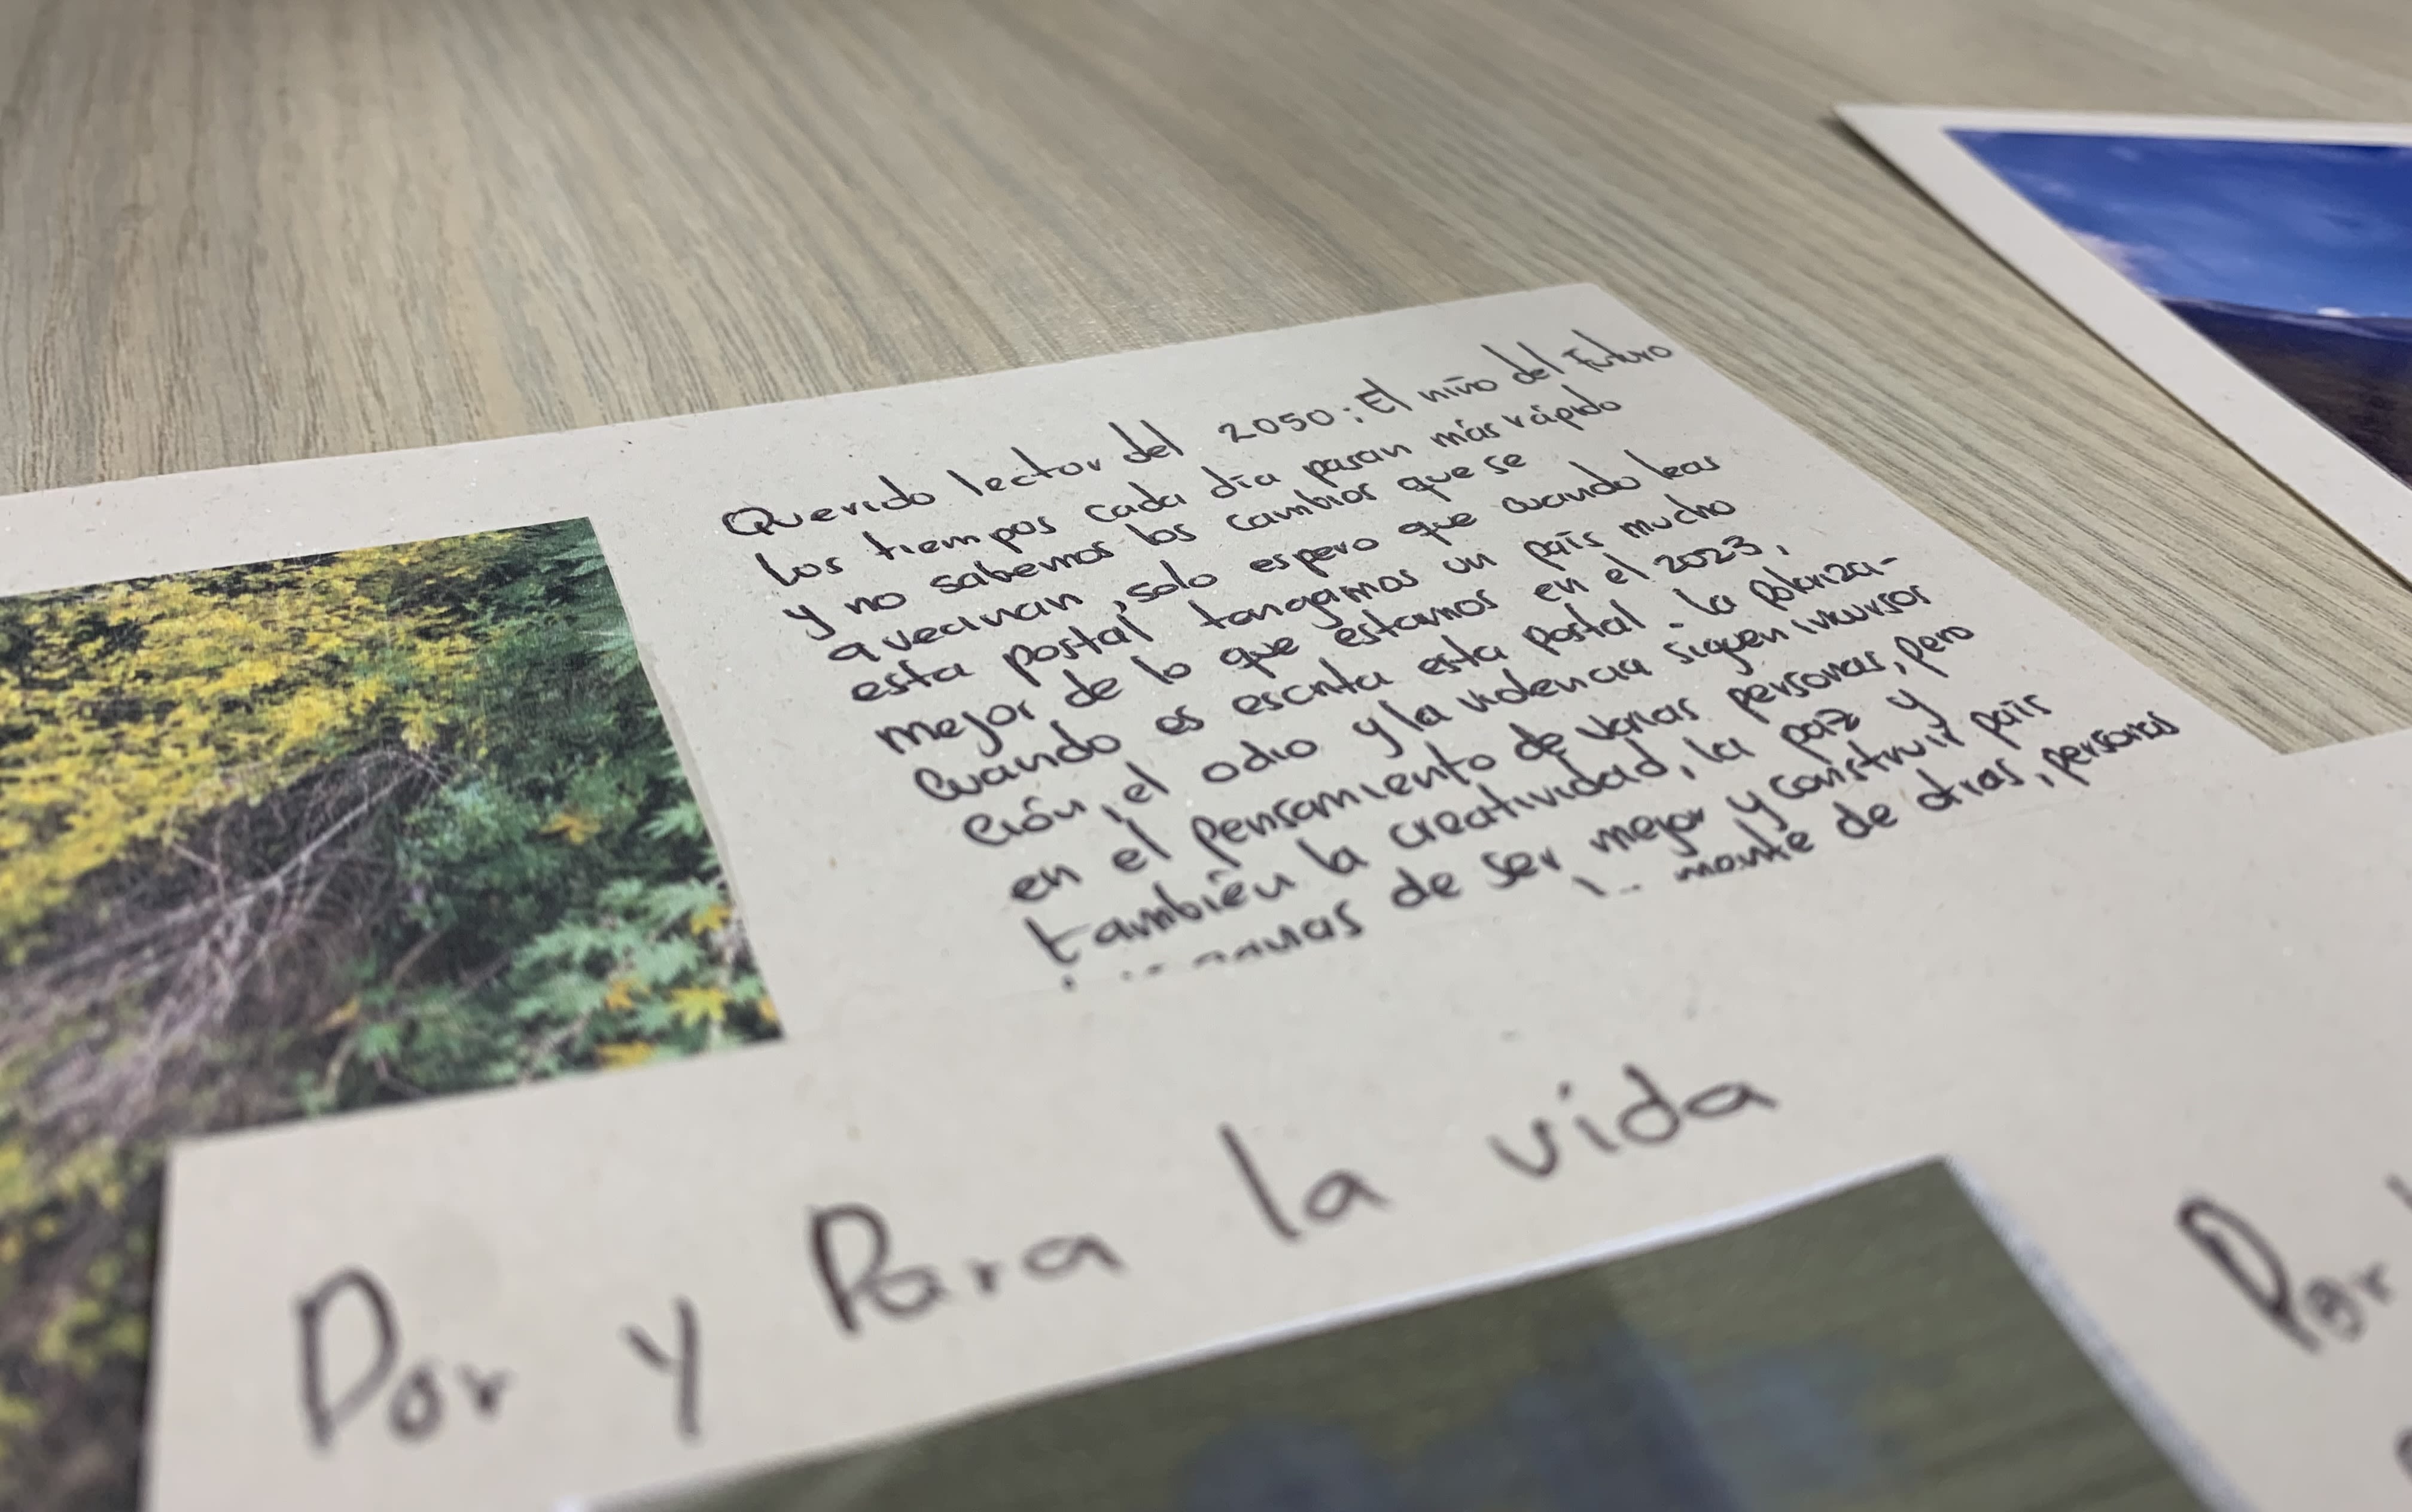 Querido lector del 2050; El niño del Futuro
los tiempos cada día pasan más rápido
y no sabemos los cambios que se
avecinan, solo espero que cuando leas
esta postal tengamos un país mucho
mejor de lo que estamos en el 2023,
cuando es escrita esta postal. la polariza-
ción, el odio y la violencia siguen incursos
en el pensamiento de varias personas, pero
también la creatividad, la paz y
ganas de ser mejor y construir país
mente de otras, personas
Por y Para la vida
Por